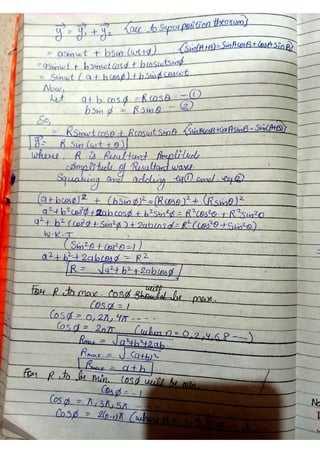 y⃗ = y⃗₁ + y⃗₂ (acc. to Superposition theorum)
= asinωt + bsin(ωt+ϕ) {Sin(A+B)=SinACosB+CosASinB}
= asinωt + bsinωtcosϕ + bcosωtsinϕ
= Sinωt (a + bcosϕ) + bsinϕcosωt
Now,
Let a + b cosϕ = Rcosθ - ①
bsinϕ = Rsinθ - ②
So,
= Rsinωtcosθ + Rcosωtsinθ {SinACosB+CosASinB = Sin(A+B)}
y⃗ = R sin(ωt + θ)
where, R is Resultant Amplitude
of Resultant wave
Squaring and adding eq① and eq②
(a+bcosϕ)² + (bsinϕ)² = (Rcosθ)² + (Rsinθ)²
a² + b²cos²ϕ + 2abcosϕ + b²sin²ϕ = R²cos²θ + R²sin²θ
a² + b²(cos²ϕ + Sin²ϕ) + 2abcosϕ = R²(cos²θ + Sin²θ)
W.K.T
(Sin²θ + Cos²θ = 1)
a² + b² + 2abcosϕ = R²
R = √a² + b² + 2abcosϕ
For R to max. cosϕ will be max.
Cosϕ = 1
Cosϕ = 0, 2π, 4π ----
Cosϕ = 2nπ (when n = 0, 2, 4, 6, 8 ---)
Rmax = √a²+b²+2ab
Rmax = √(a+b)²
Rmax = a + b
For R to be min. cosϕ will be min.
Cosϕ = -1
Cosϕ = π, 3π, 5π
Cosϕ = 2(n-1)π